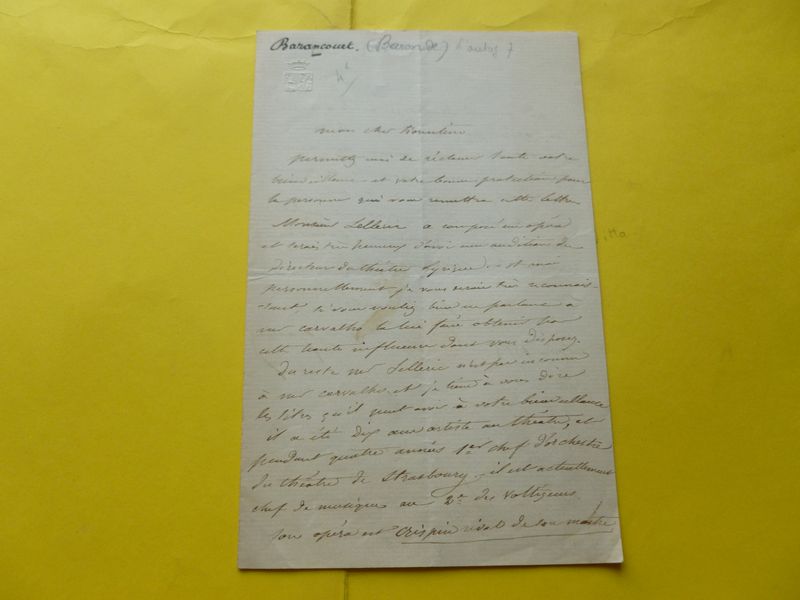 Barancourt. (Baron de)
mon cher
permettez moi de réclamer toute votre
bienveillance et votre bonne protection pour
la personne qui vous remettra cette lettre
Monsieur a composé un opéra
et serait très heureux d'avoir une audition du
directeur du théâtre lyrique. et moi
personnellement je vous serais très reconnais
sant, si vous vouliez bien en parlant à
mr carvalho la lui faire obtenir par
cette haute influence dont vous disposez.
Du reste mr n'est pas inconnu
à mr carvalho, et je tiens à vous dire
les titres qu'il peut avoir à votre bienveillance
il a été dix ans artiste au théâtre, et
pendant quatre années 1er chef d'orchestre
du théâtre de Strasbourg - il est actuellement
chef de musique au 2me des voltigeurs
son opéra est Crispin rival de son maître